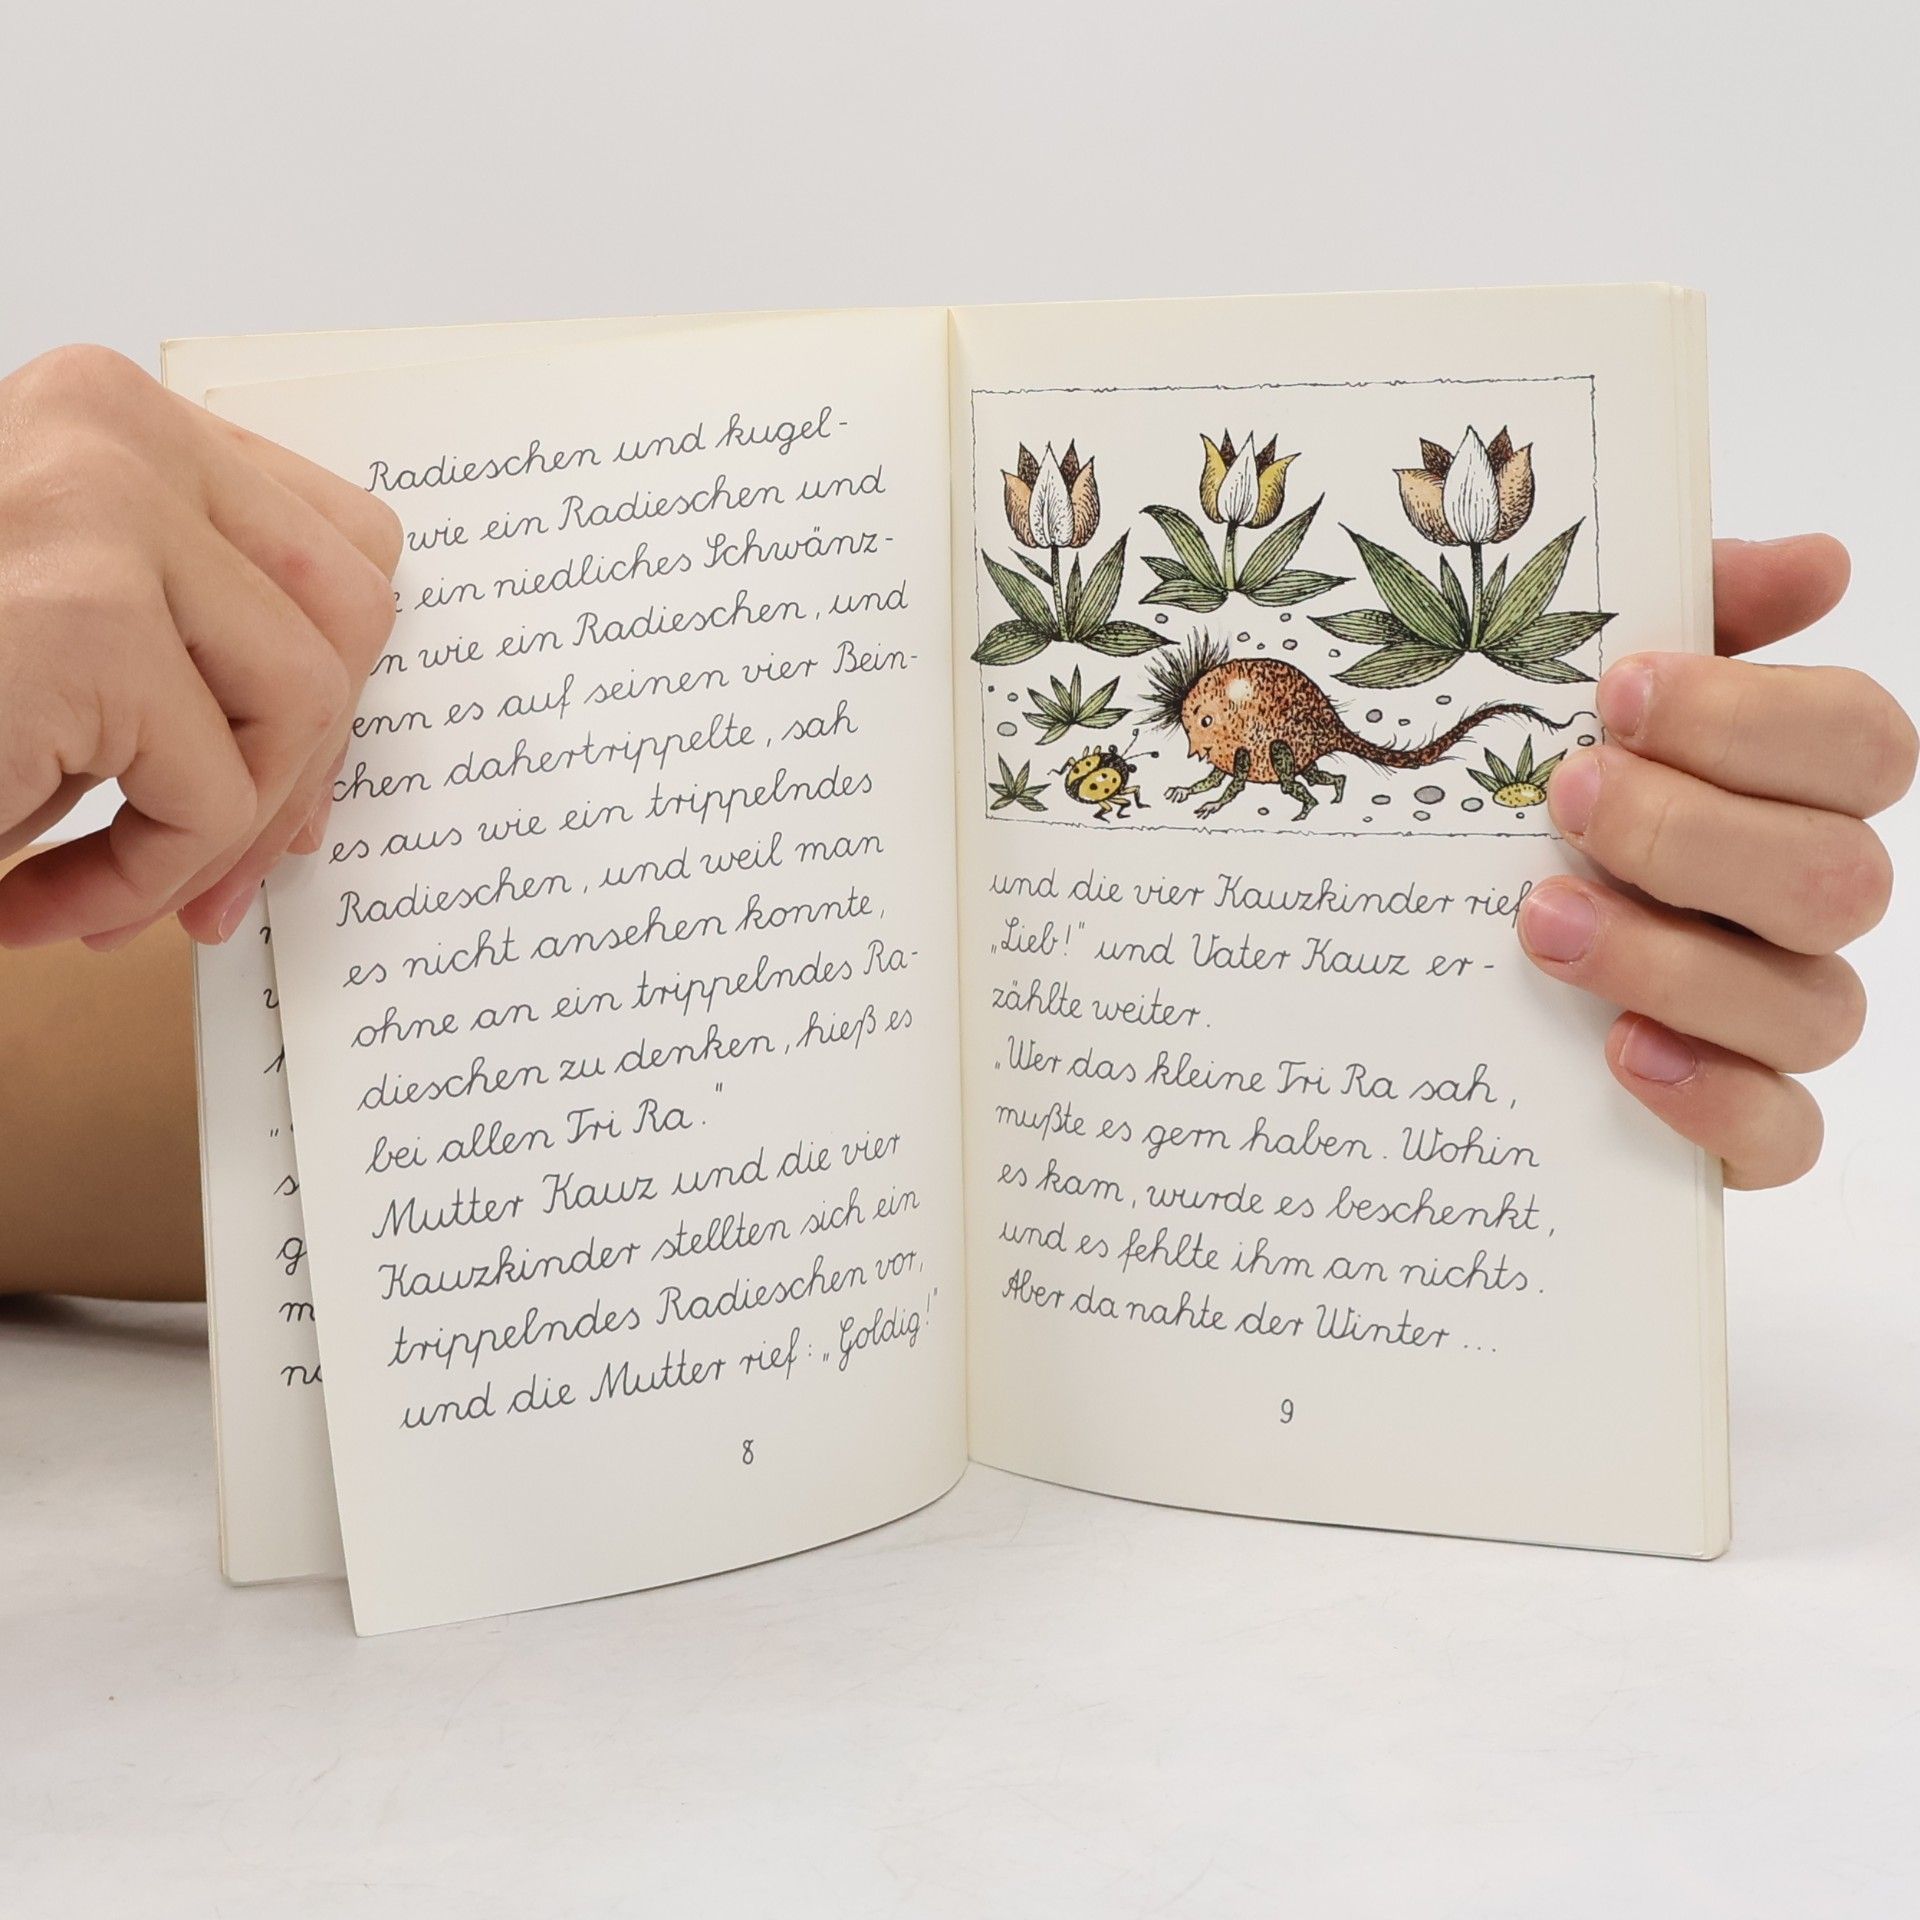 Radieschen und kugel-
wie ein Radieschen und
ein niedliches Schwänz-
wie ein Radieschen, und
es auf seinen vier Bein-
chen dahertrippelte, sah
es aus wie ein trippelndes
Radieschen, und weil man
es nicht ansehen konnte,
ohne an ein trippelndes Ra-
dieschen zu denken, hieß es
bei allen Tri Ra."
Mutter Kauz und die vier
Kauzkinder stellten sich ein
trippelndes Radieschen vor,
und die Mutter rief: „Goldig!"
8
und die vier Kauzkinder
„Lieb!" und Vater Kauz er-
zählte weiter.
„Wer das kleine Tri Ra sah,
mußte es gern haben. Wohin
es kam, wurde es beschenkt,
und es fehlte ihm an nichts.
Aber da nahte der Winter ...
9